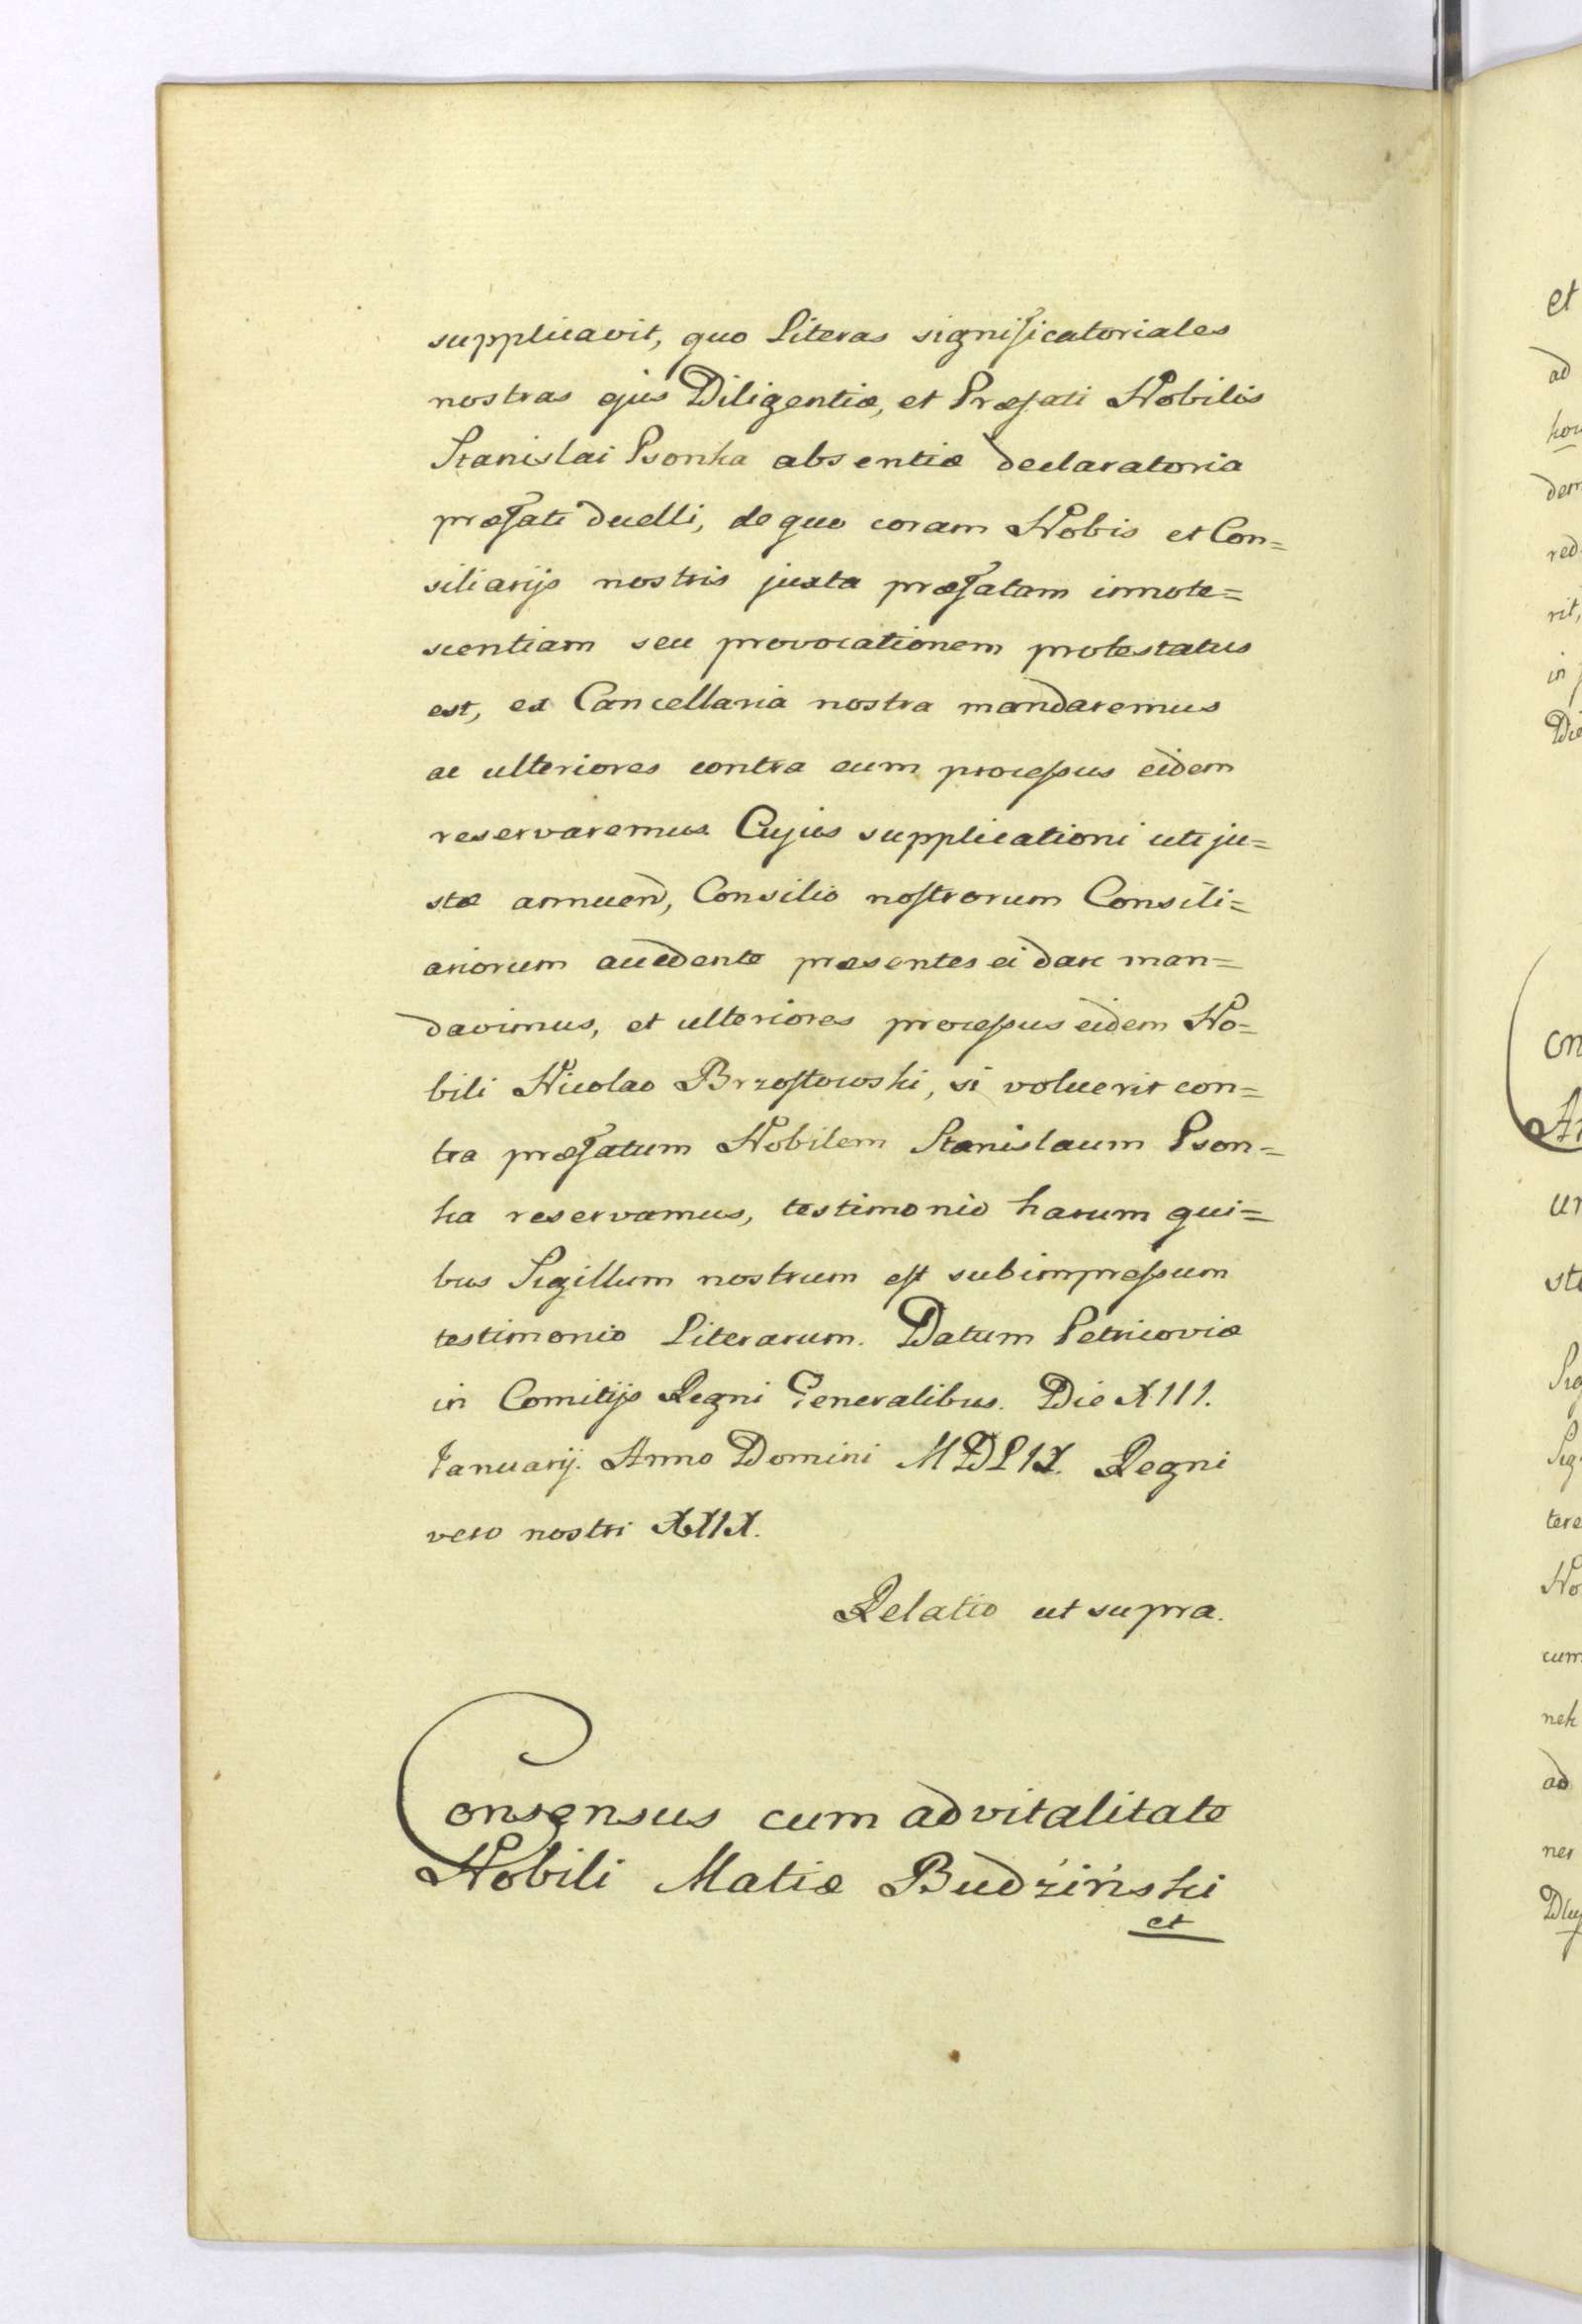 supplicavit, quo Literas significatoriales
nostras ejus Diligentiæ, et Præfati Nobilis
Stanislai Psonka absentiæ declaratoria
præfati duelli, de quo coram Nobis et Con=
siliarijs nostris juxta præfatam innote=
scentiam seu provocationem protestatus
est, ex Cancellaria nostra mandaremus
ac ulteriores contra eum processus eidem
reservaremus. Cujus supplicationi uti ju=
stæ annuen, Consilio nostrorum Consili=
ariorum accedente præsentes ei dare man=
davimus, et ulteriores processus eidem No=
bili Nicolao Brzostowski, si voluerit con=
tra præfatum Nobilem Stanislaum Pson=
ka reservamus, testimonio harum qui=
bus Sigillum nostrum est subimpressum
testimonio Literarum. Datum Petricoviæ
in Comitijs Regni Generalibus. Die XIII.
Januarij. Anno Domini MDLIX. Regni
vero nostri XXIX.
Relatio ut supra.
Consensus cum advitalitate
Nobili Matiæ Budziński
et
et
ad
dem
red
rit,
in
Die
on
ur
sti
tere
No
cum
nek
ad
ner